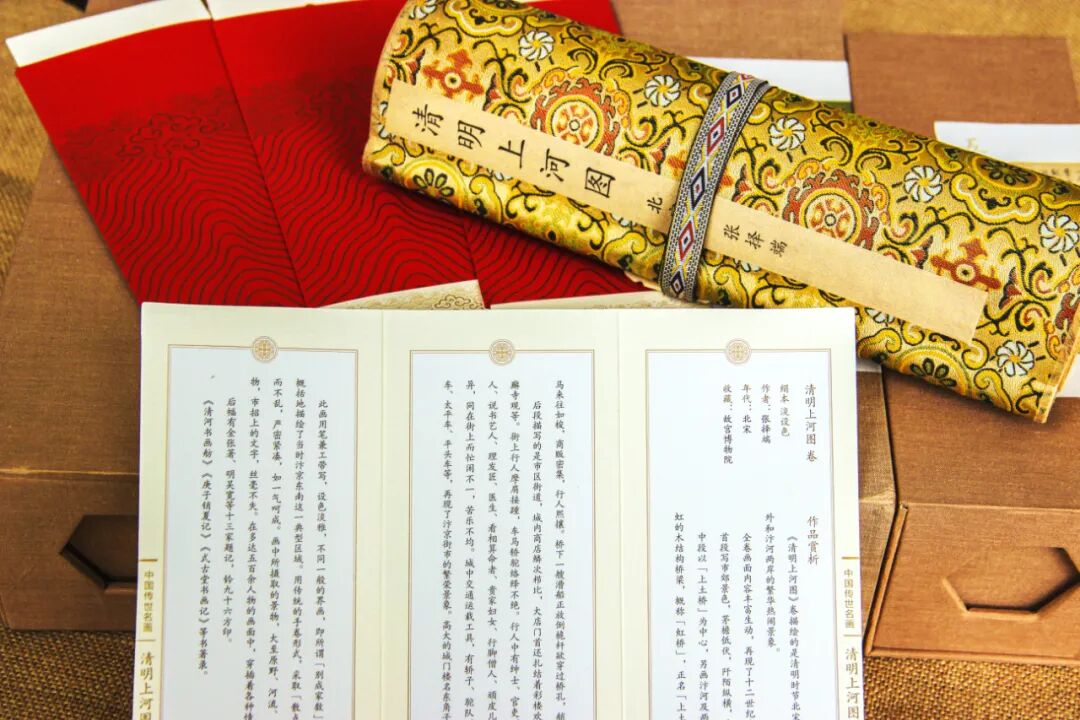 清明上河图
北
张择端
清明上河图 卷
绢本 淡设色
作者：张择端
年代：北宋
收藏：故宫博物院
作品赏析
《清明上河图》卷描绘的是清明时节北宋
外和汴河两岸的繁华热闹景象。
全卷画面内容丰富生动，再现了十二世纪
首段写市郊景色，茅檐低伏，阡陌纵横，
中段以「上土桥」为中心，另画汴河及两
虹的木结构桥梁，概称「虹桥」，正名「上土
马来往如梭，商贩密集，行人熙攘。桥下一艘漕船正放倒桅杆欲穿过桥孔，梢
后段描写的是市区街道，城内商店鳞次栉比，大店门首还扎结着彩楼欢
廨寺观等。街上行人摩肩接踵，车马轿驼络绎不绝。行人中有绅士、官吏、
人、说书艺人、理发匠、医生、看相算命者、贵家妇女、行脚僧人、顽皮儿
异，同在街上而忙闲不一，苦乐不均。城中交通运载工具，有轿子、驼队、
车、太平车、平头车等，再现了汴京街市的繁荣景象。高大的城门楼名东角子
此画用笔兼工带写，设色淡雅，不同一般的界画，即所谓「别成家数」
概括地描绘了当时汴京东南这一典型区域。用传统的手卷形式，采取「散点
而不乱，严密紧凑，如一气呵成。画中所摄取的景物，大至原野、河流、
物，市招上的文字，丝毫不失。在多达五百余人物的画面中，穿插着各种情
后幅有金张著、明吴宽等十三家题记，钤九十六方印。
《清河书画舫》《庚子销夏记》《式古堂书画记》等书著录。
中国传世名画
清明上河图
中国传世名画
清明上河图